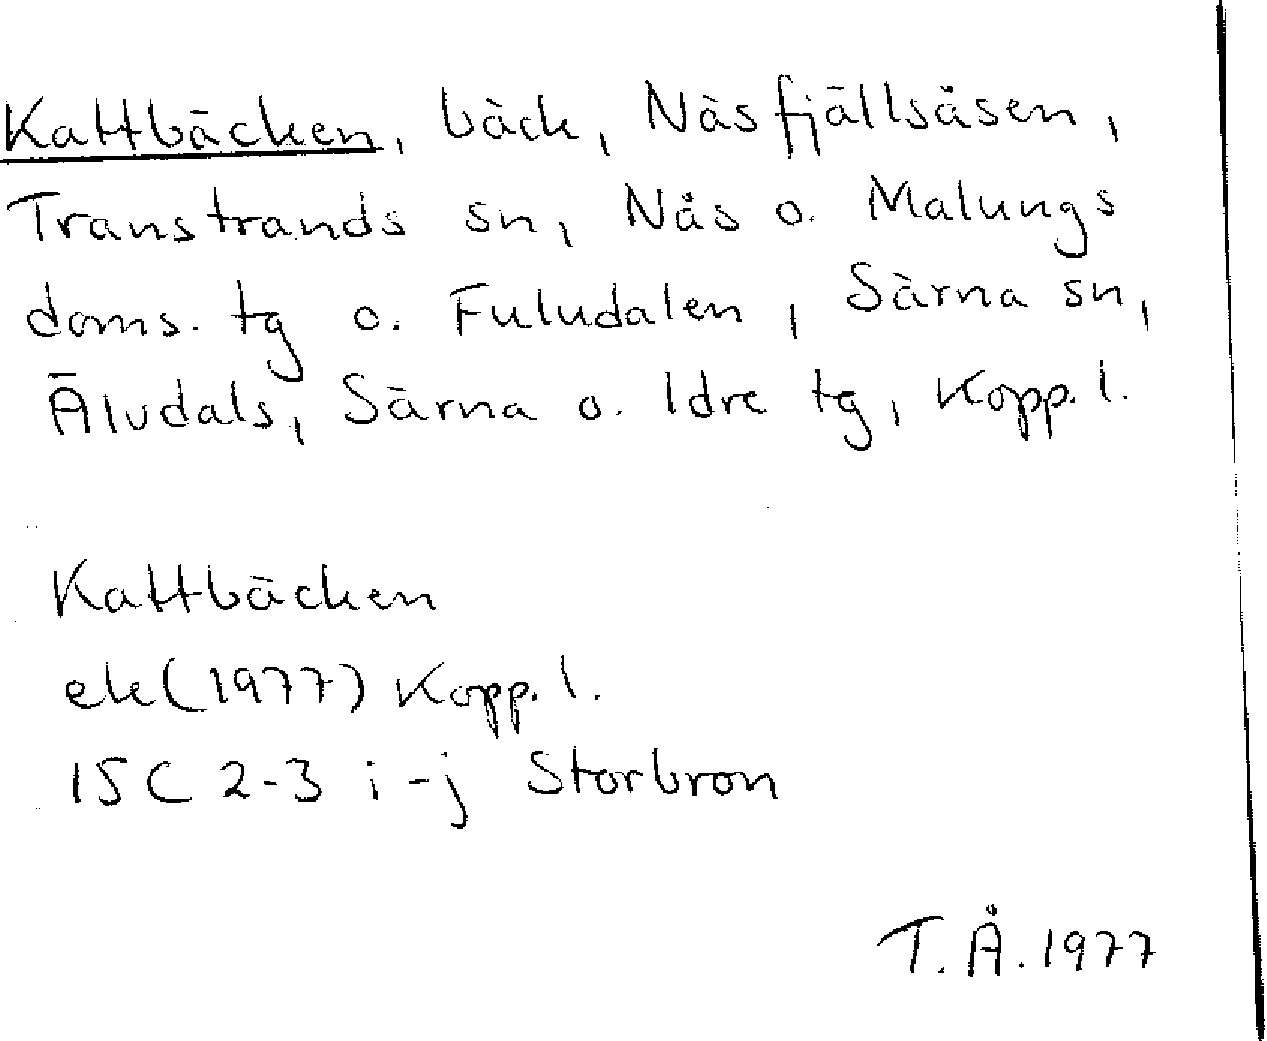 Kattbäcken, bäck, Näsfjällsåsen,
Transtrands sn, Nås o. Malungs
doms. tg o. Fuludalen, Särna sn,
Älvdals, Särna o. Idre tg, Kopp. l.
Kattbäcken
ek (1977) Kopp. l.
15C 2-3 i-j Storbron
T.Å. 1977